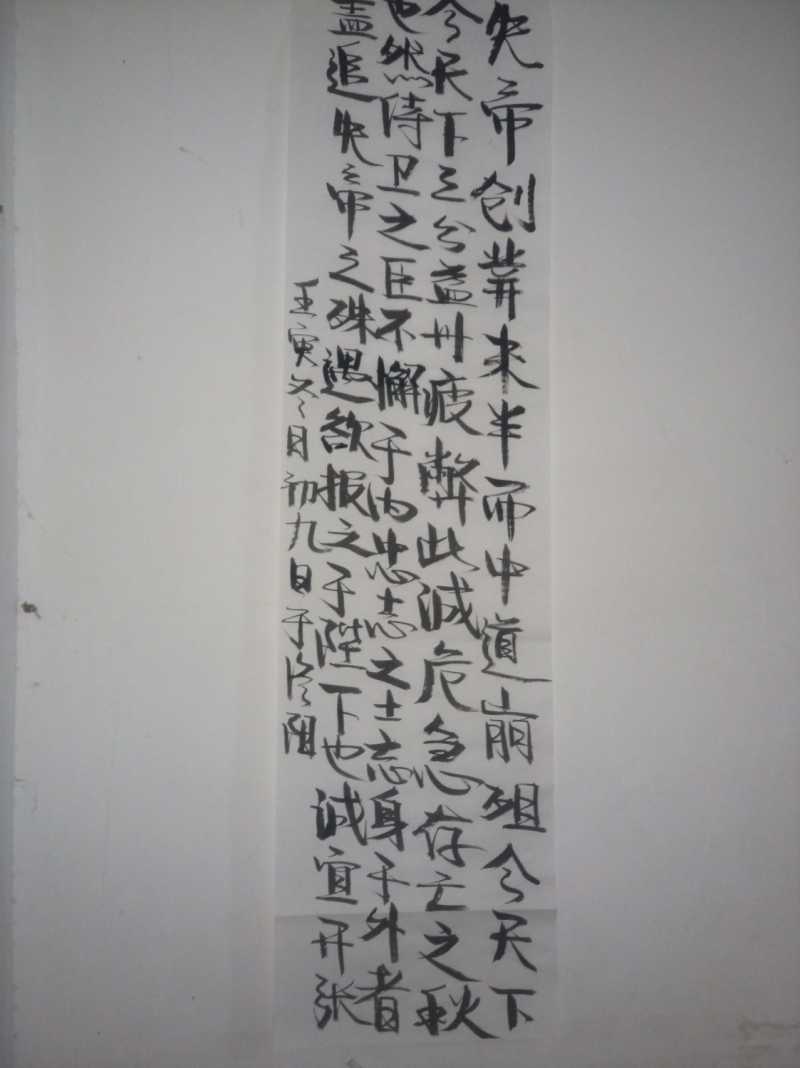 先帝创業未半而中道崩殂今天下
今天下三分益州疲弊此诚危急存亡之秋
也然侍卫之臣不懈于内忠志之士志身于外者
盖追先帝之殊遇欲报之于陛下也诚宜开张
壬寅冬月初九日于洛阳